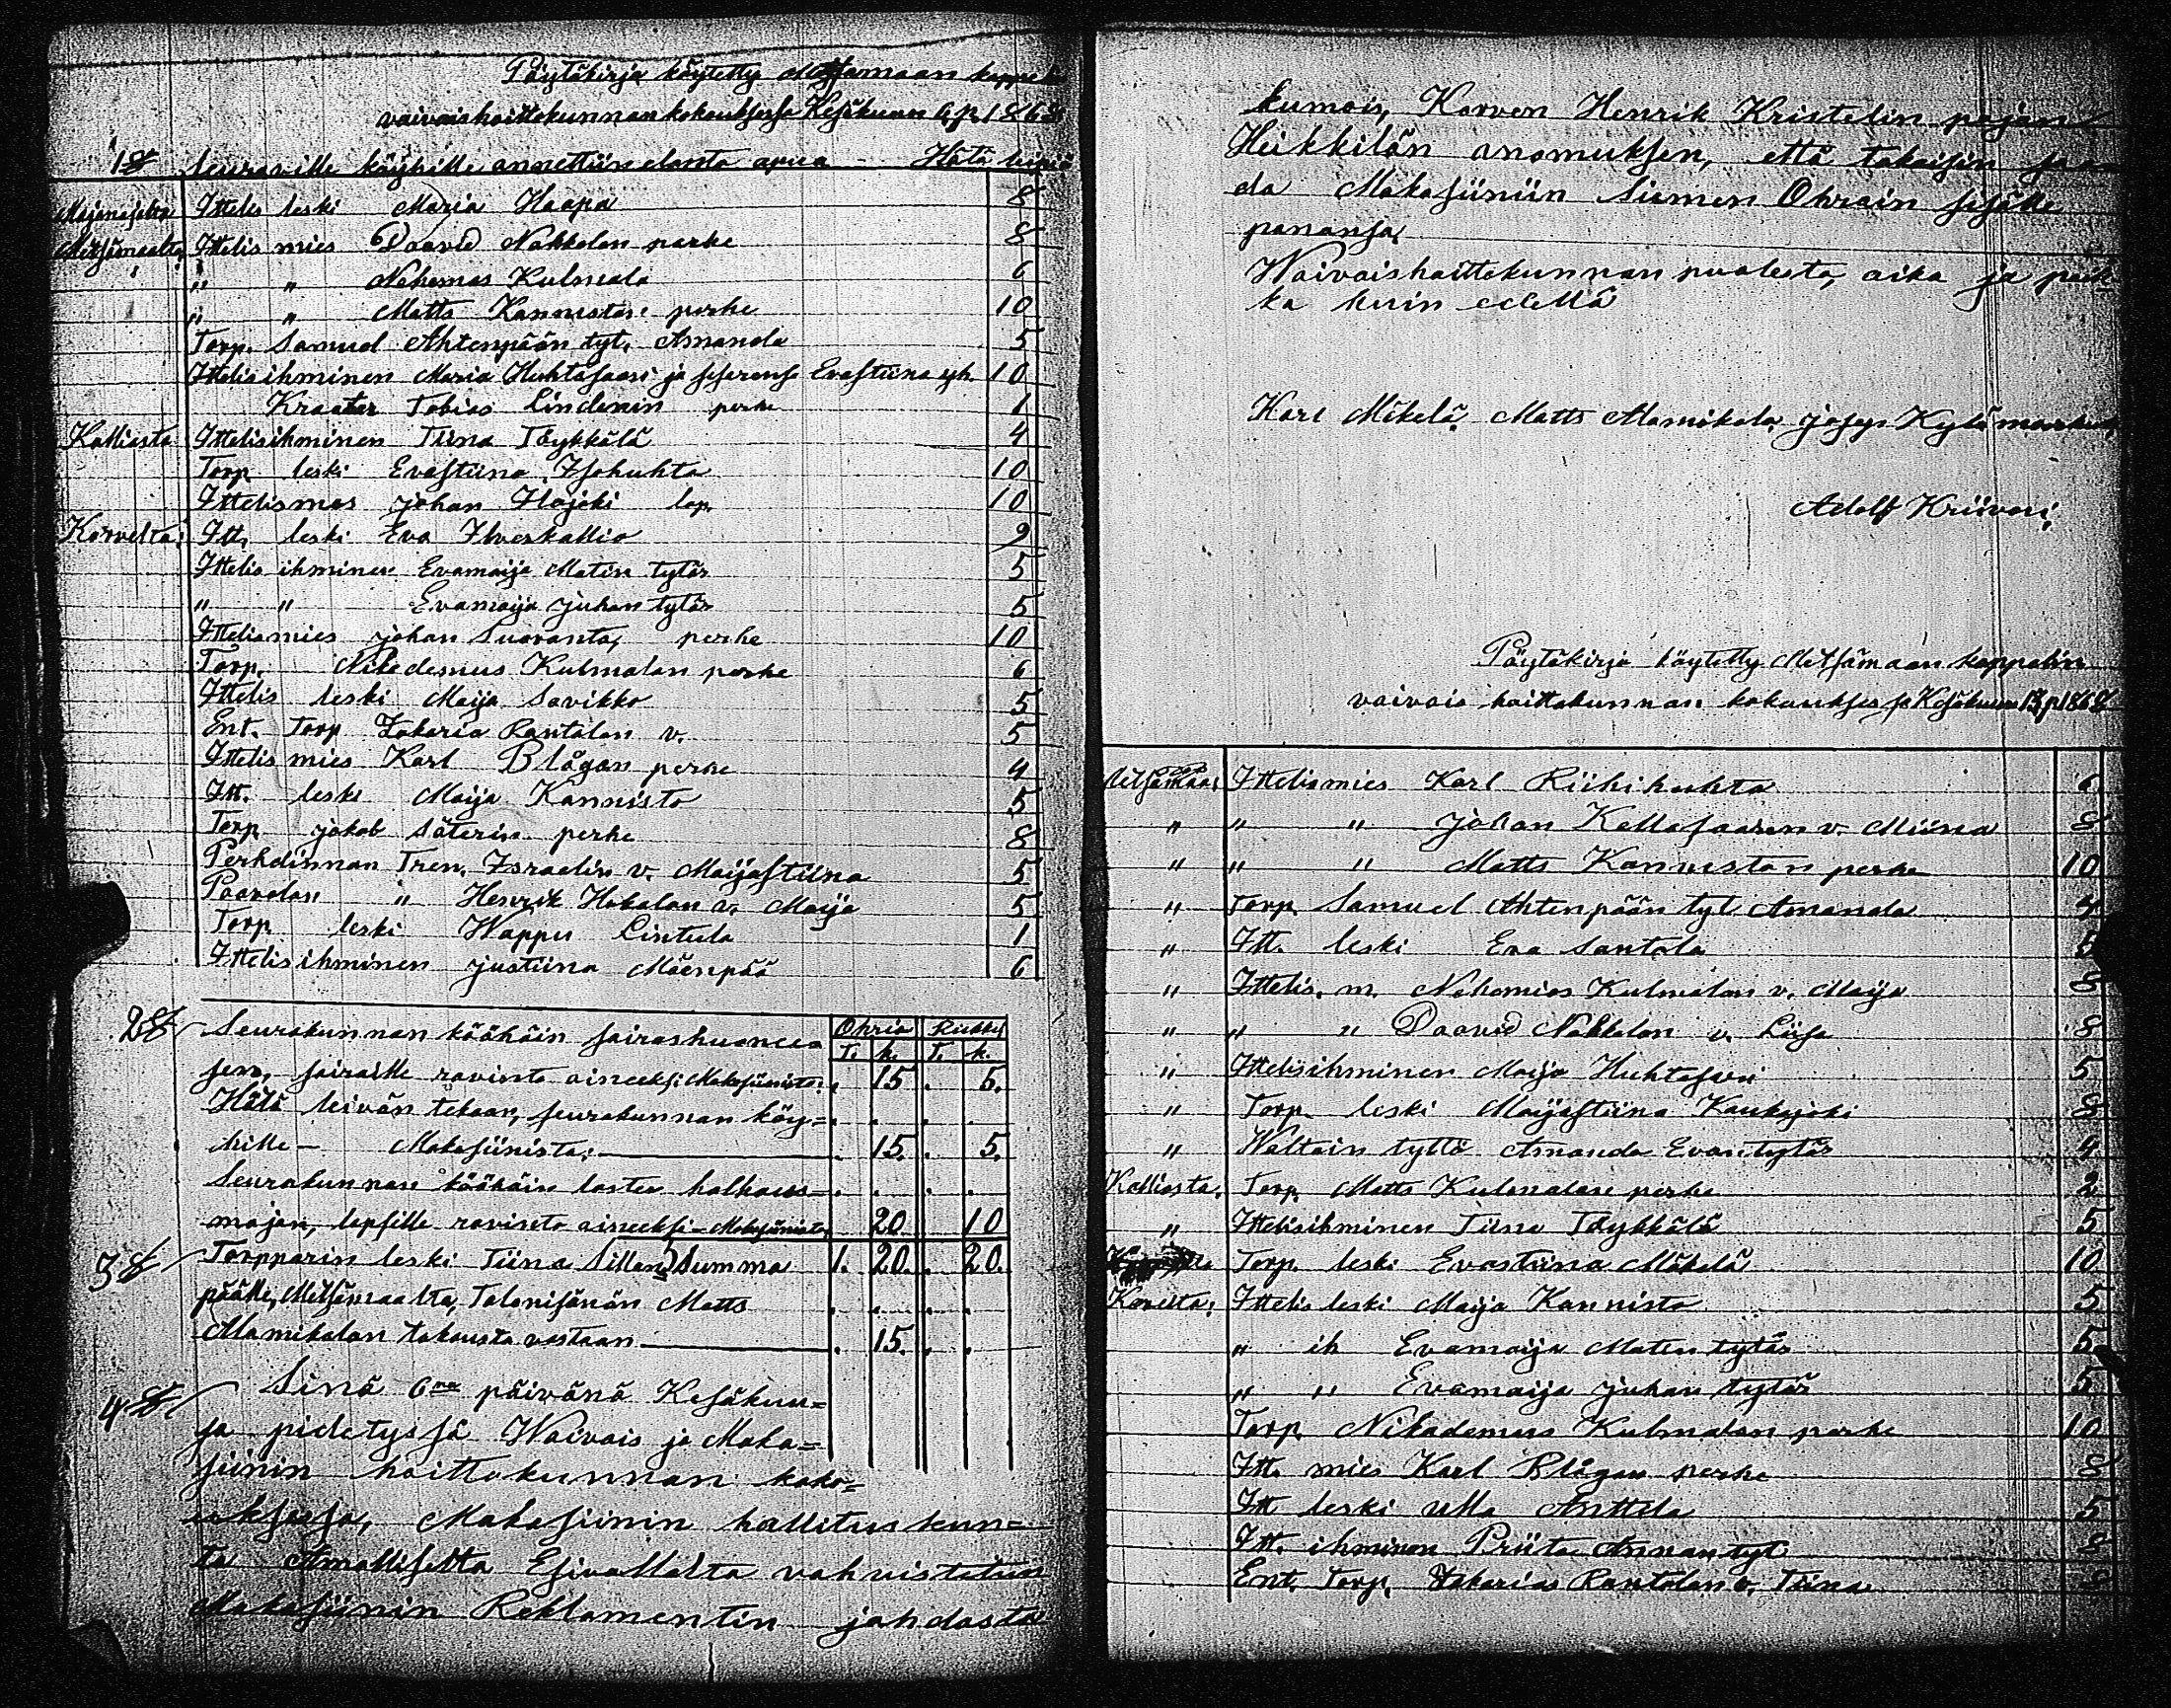 Pöytäkirja köytetty Metsämaan kappelin
vaivaishoittokunnan kokouksessa Kesäkuun 6 p. 1868
1 § Seuraville köyhille annettiin elanto apua - Hätä leipä
Leski Maria Haapa 8
Metsämaalta, Ittelis mies Daavid Nokkalan perhe 8
" " " Nehemas Kulmala 6
" " Matts Kanniston perhe 10
Torp. Samuel Ahtenpään tyt. Amanda 5
Ittelisihminen Maria Huhtasaari ja sisarensa Evastiina yh. 10
Kraatar Tobias Lindenin perhe 1
Kalliasta Ittelisihminen Tiina Töykkälä 4
Torp. leski Evastiina Isohuhta 10
Ittelismes Johan Hajoki lap. 10
Korvelta: Itt. leski Eva Ilveskallio 9
Ittelis ihminen Evamaija Matin tytär 5
" " Evamaija Juhan tytär 5
Ittelismies Johan Suoranta, perhe 10
Torp. Nikedemus Kulmalan perhe 6
Ittelis leski Maija Savikko 5
Ent. Torp Zakaria Rantalan v. 5
Ittelis mies Karl Blågan perhe 4
Itt. leski Maija Kannisto 5
Torp. Jakob Säterin perhe 8
Perhelinnan Tren. Israelin v. Maijastiina 5
Paavolan " Henrik Hakalan v. Maija 5
Torp leski Wappu Lintula 1
Ittelisihminen Justiina Mäenpää 6
2 § Seurakunnan kööhäin sairashuoneesen Ohria Rukky
T. k. T. k.
sen, sairaille ravinto aineeksi Makasiinista: . 15 . 5.
Hätä leivän tekoon, seurakunnan köy= . . . .
hille - Makasiinista: . 15. . 5.
Seurakunnan kööhäin lasten halhous= . . . .
majan, lapsille ravinto aineeksi - Makasiinista . 20 . 10
Summa 1. 20. . 20.
3 § Torpparin leski Tiina Sillan
päälle, Metsämaalta, Talonisänän Matts . . . .
Mamikalan takausta vastaan . 15. . .
4 § Sinä 6na päivänä Kesäkuu=
sa pidetyssä Waivais ja Maka=
siinin hoittokunnan koko=
uksessa, Makasiinin hallituskun=
ta Amallisetta Esivallalta vahvistetun
Makasiinin Reklamentin johdosta
kumois, Korven Henrik Kristelin pojan
Heikkilän anomuksen, että takaisin saa
da Makasiiniin Siemen Ohrain sisälle
panansa,
Waivaishoittokunnan puolesta, aika ja paik
ka kuin edellä
Karl Mäkelä. Matts Mamikala, Josep Kylämarkus,
Adolf Kriivari,
Pöytäkirja köytetty Metsämaan kappelin
vaivais hoittokunnan kokouksessa Kesäkuun 13 p 1868
Metsämaa, Ittelismies Karl Riihihuhta 6
" " " Johan Kallasaaren v. Miina 8
" " " Matts Kanniston perhe 10
" Torp. Samuel Ahtenpään tyt Amanda
" Itt. leski Eva Santala 5
" Ittelis. m. Nehemias Kulmalan v. Maija 8
" " " Daavid Nokkalan v. Liisa 8
" Ittelisihminen Maija Huhtasaari 5
" Torp. leski Maijastiina Kaukajoki 8
" Waltain tyttö Amanda Evantytär 4
Kalliasta, Torp. Matts Kulmalan perhe 2
" Ittelisihminen Tiina Töykkälä 5
Torp. leski Evastiina Mäkelä 10
Korvelta; Ittelis leski Maija Kannisto 5
" ih Evamaija Maten tytär 5
" " Evamaija Juhan tytär 5
Torp. Nikademus Kulmalan perhe 10
Itt. mies Karl Blågan perhe 8
Itt leski Ulla Anttila 5
Itt. ihminen Priita Annan tyt 8
Ent. Torp. Zakarias Rantalan v. Tiina 8